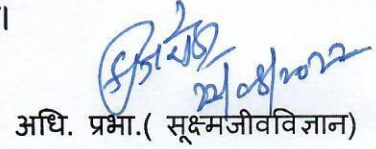 ।
22/08/2022
अधि. प्रभा.( सूक्ष्मजीवविज्ञान)